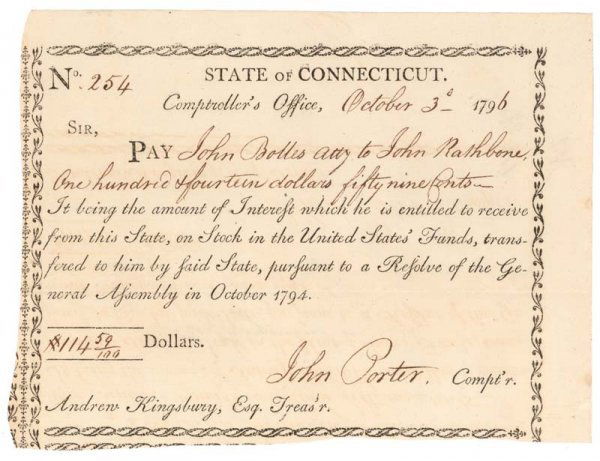 No. 254 STATE OF CONNECTICUT.
Comptroller's Office, October 3d 1796
SIR,
PAY John Bolles atty to John Rathbone,
One hundred & fourteen dollars fifty nine Cents
It being the amount of Interest which he is entitled to receive
from this State, on Stock in the United States' Funds, trans-
fered to him by said State, pursuant to a Resolve of the Ge-
neral Assembly in October 1794.
$114 59/100 Dollars.
John Porter. Compt'r.
Andrew Kingsbury, Esq. Treas'r.